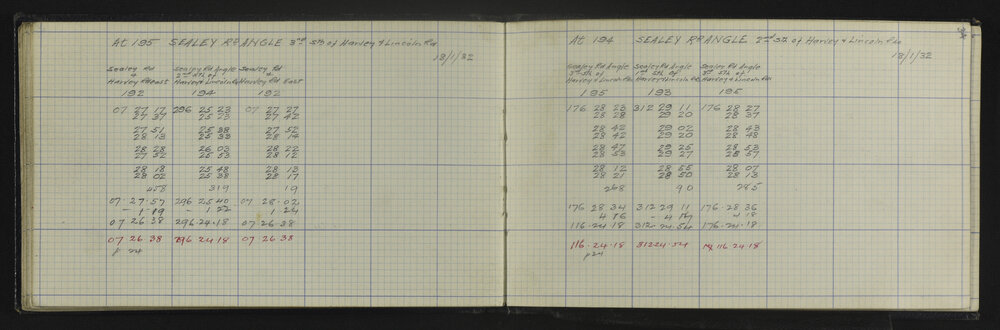 At 195 SEALEY Rd ANGLE 3rd Sth of Harvey & Lincoln Rd
18/1/32
Sealey Rd Sealey Rd Angle Sealey Rd
& 2nd Sth of &
Harvey Rd East Harvey & Lincoln Rd Harvey Rd East
192 194 192
07 27 17 296 25 23 07 27 27
27 37 25 23 27 42
27 51 25 38 27 52
28 13 25 33 28 14
28 28 26 03 28 22
27 52 25 53 28 12
28 18 25 48 28 13
28 02 25 38 28 17
458 319 19
07 · 27 · 57 296 25 40 07 28 · 02
- 1 - 19 - 1 22 1 · 24
07 26 38 296 · 24 · 18 07 · 26 · 38
07 26 38 296 24 18 07 26 38
p 24
34
At 194 SEALEY Rd ANGLE 2nd Sth of Harvey & Lincoln Rds
18/1/32
Sealey Rd Angle Sealey Rd Angle Sealey Rd Angle
3rd Sth of 1st Sth of 3rd Sth of
Harvey & Lincoln Rds Harvey & Lincoln Rds Harvey & Lincoln Rds
195 193 195
176 28 23 312 29 11 176 28 27
28 28 29 20 28 37
28 42 29 02 28 43
28 42 29 20 28 48
28 47 29 25 28 53
28 53 29 27 28 57
28 12 28 55 28 07
28 21 28 50 28 13
268 90 285
176 28 34 312 · 29 11 176 · 28 · 36
4 16 - 4 17 4 18
116 · 24 · 18 312 · 24 · 54 176 · 24 · 18
116 · 24 · 18 312 24 · 54 116 24 · 18
p 24